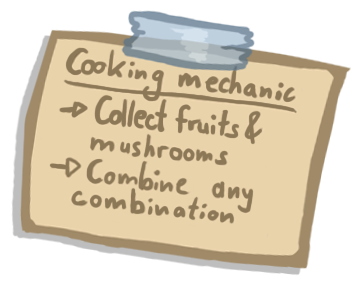 Cooking mechanic
→ Collect fruits &
mushrooms
→ Combine any
combination